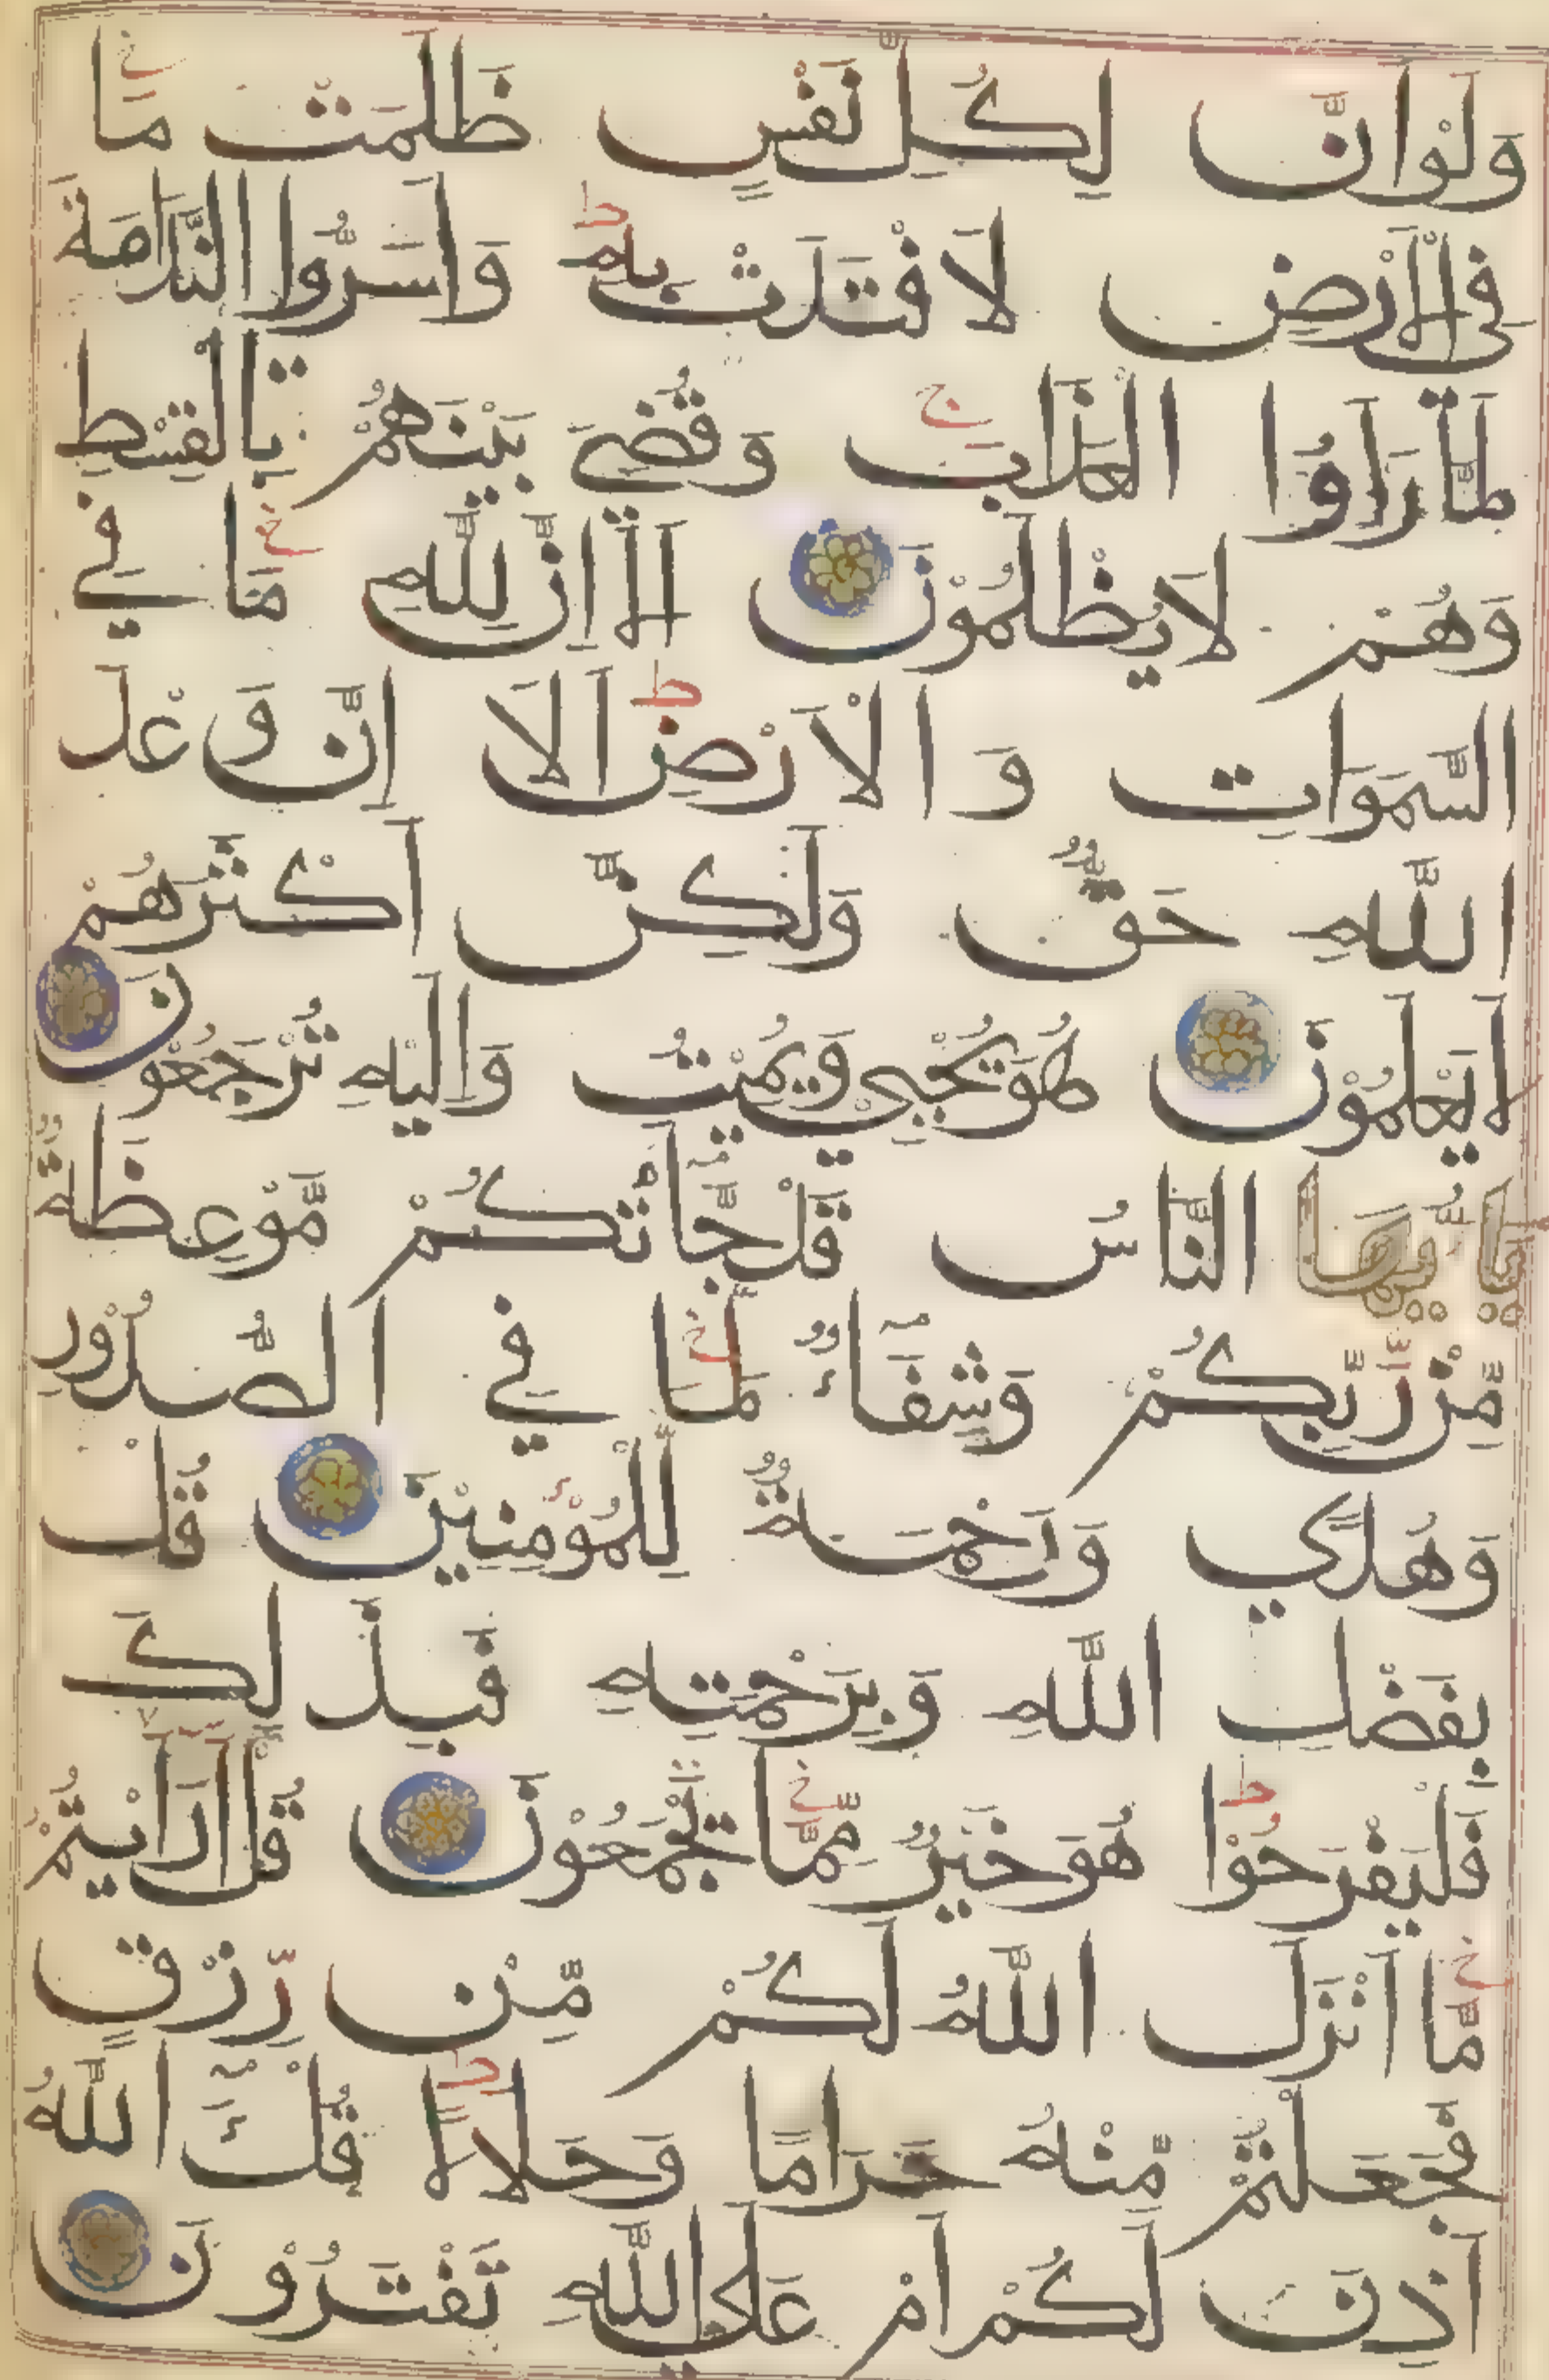 وَلَوْ اَنَّ لِكُلِّ نَفْسٍ ظَلَمَتْ مَا
فِى الْاَرْضِ لَافْتَدَتْ بِهٖ ط وَاَسَرُّوا النَّدَامَةَ
لَمَّا رَاَوُا الْعَذَابَ ج وَقُضِيَ بَيْنَهُمْ بِالْقِسْطِ
وَهُمْ لَا يُظْلَمُوْنَ اَلَا اِنَّ لِلّٰهِ مَا فِي
السَّمَوَاتِ وَ الْاَرْضِ ط اَلَا اِنَّ وَعْدَ
اللّٰهِ حَقٌّ وَلَكِنَّ اَكْثَرَهُمْ
لَا يَعْلَمُوْنَ هُوَ يُحْيِي وَيُمِيْتُ وَاِلَيْهِ تُرْجَعُوْنَ
يَا اَيُّهَا النَّاسُ قَدْ جَآءَتْكُمْ مَّوْعِظَةٌ
مِّنْ رَّبِّكُمْ وَشِفَآءٌ لِّمَا فِي الصُّدُوْرِ
وَهُدًي وَّرَحْمَةٌ لِّلْمُؤْمِنِيْنَ قُلْ
بِفَضْلِ اللّٰهِ وَبِرَحْمَتِهِ فَبِذَلِكَ
فَلْيَفْرَحُوْا ط هُوَ خَيْرٌ مِّمَّا يَجْمَعُوْنَ قُلْ اَرَاَيْتُمْ
مَّا اَنْزَلَ اللّٰهُ لَكُمْ مِّنْ رِّزْقٍ
فَجَعَلْتُمْ مِّنْهُ حَرَامًا وَحَلَالًا ط قُلْ آٰللّٰهُ
اَذِنَ لَكُمْ اَمْ عَلَي اللّٰهِ تَفْتَرُوْنَ